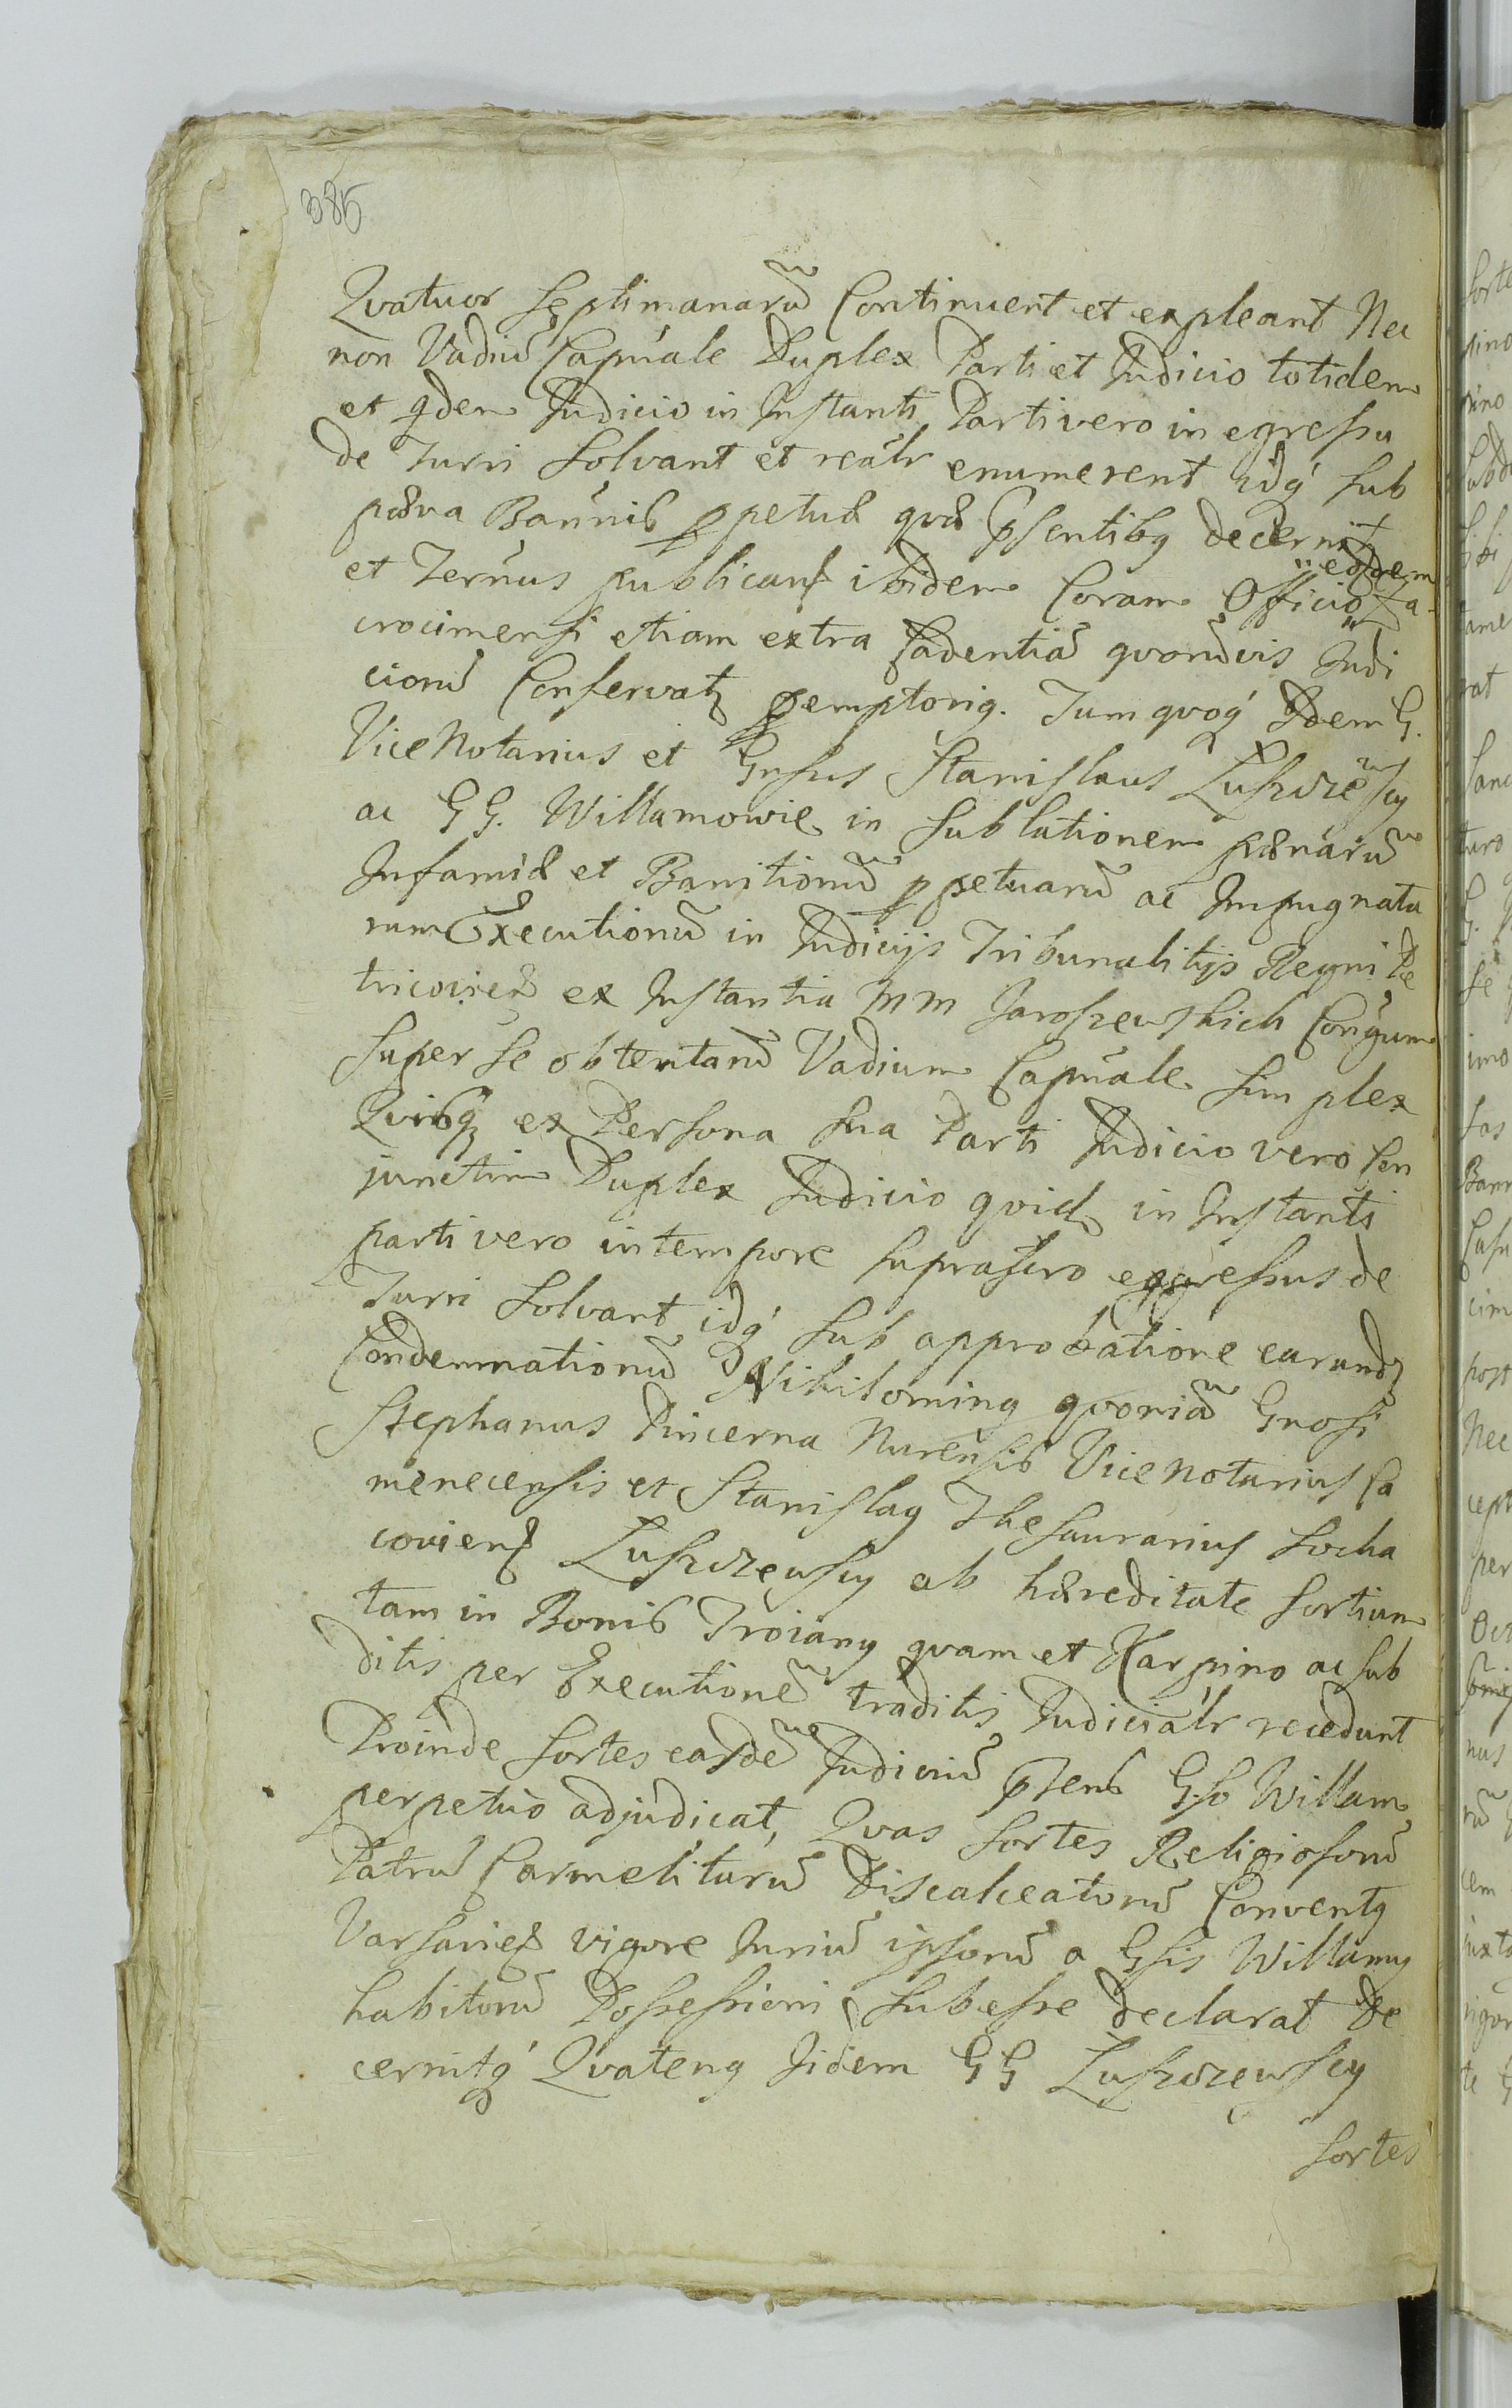 385
Qvatuor Septimanarũ Continuent et expleant Nec
non Vadiũ Capńale Duplex Parti et Judicio totidem
et qdem Judicio in Instanti Parti vero in egressu
de Turri Solvant et reãlr enumerent idq́ sub
pœna Bannis ppetuæ qvæ p̃sentibq decernit
et Terńus publicanꝭ ibidem Coram Officio eodem Za-
crocimensi etiam extra Cadentiã qvorũvis Judi
ciorũ Conservatʒ pemptoriq. Tum qvoq́ Idem G.
Vice Notarius et Gnsus Stanislaus Łuszczẽwscy
ac G G. Willamowie in Sublationem pœnarũ
Infamiæ et Banitionũ ppetuarũ ac Impugnata
rum Executionũ in Judicijs Tribunalitijs Regni Pe
tricovieꝭ ex Instantia MM Jaroszewskich Coñgum
super se obtentarũ Vadium Capńale simplex
Qvisq ex Persona sua Parti Judicio vero Con
junctim Duplex Judicio qvid in Instanti
parti vero in tempore suprascro egressus de
Turri Solvant idq́ sub approbatione earundʒ
Condemnationũ Nihilominq qvoniã Gnosi
Stephanus Pincerna Nurẽnsis Vice Notarius Ca
menecensis et Stanislaq Thesaurarius Socha
covienꝭ Łuszczewscy ab hæreditate Sortium
tam in Bonis Troiany qvam et Karpino ac Sub
ditis per Executionẽ traditis Judiciãlr recedunt
Proinde Sortes easdẽ Judiciũ p̃sens Gso Willam
perpetuo adjudicat, Qvas Sortes Religiosorũ
Patrũ Carmelitarũ Discalceatorũ Conventq
Varsavieꝭ vigore Juriũ ipsorũ a Gsis Willamy
habitorũ Possessioni Subesse declarat De
cernitq́ Qvatenq Iidem G G Łuszczewscy
Sortes